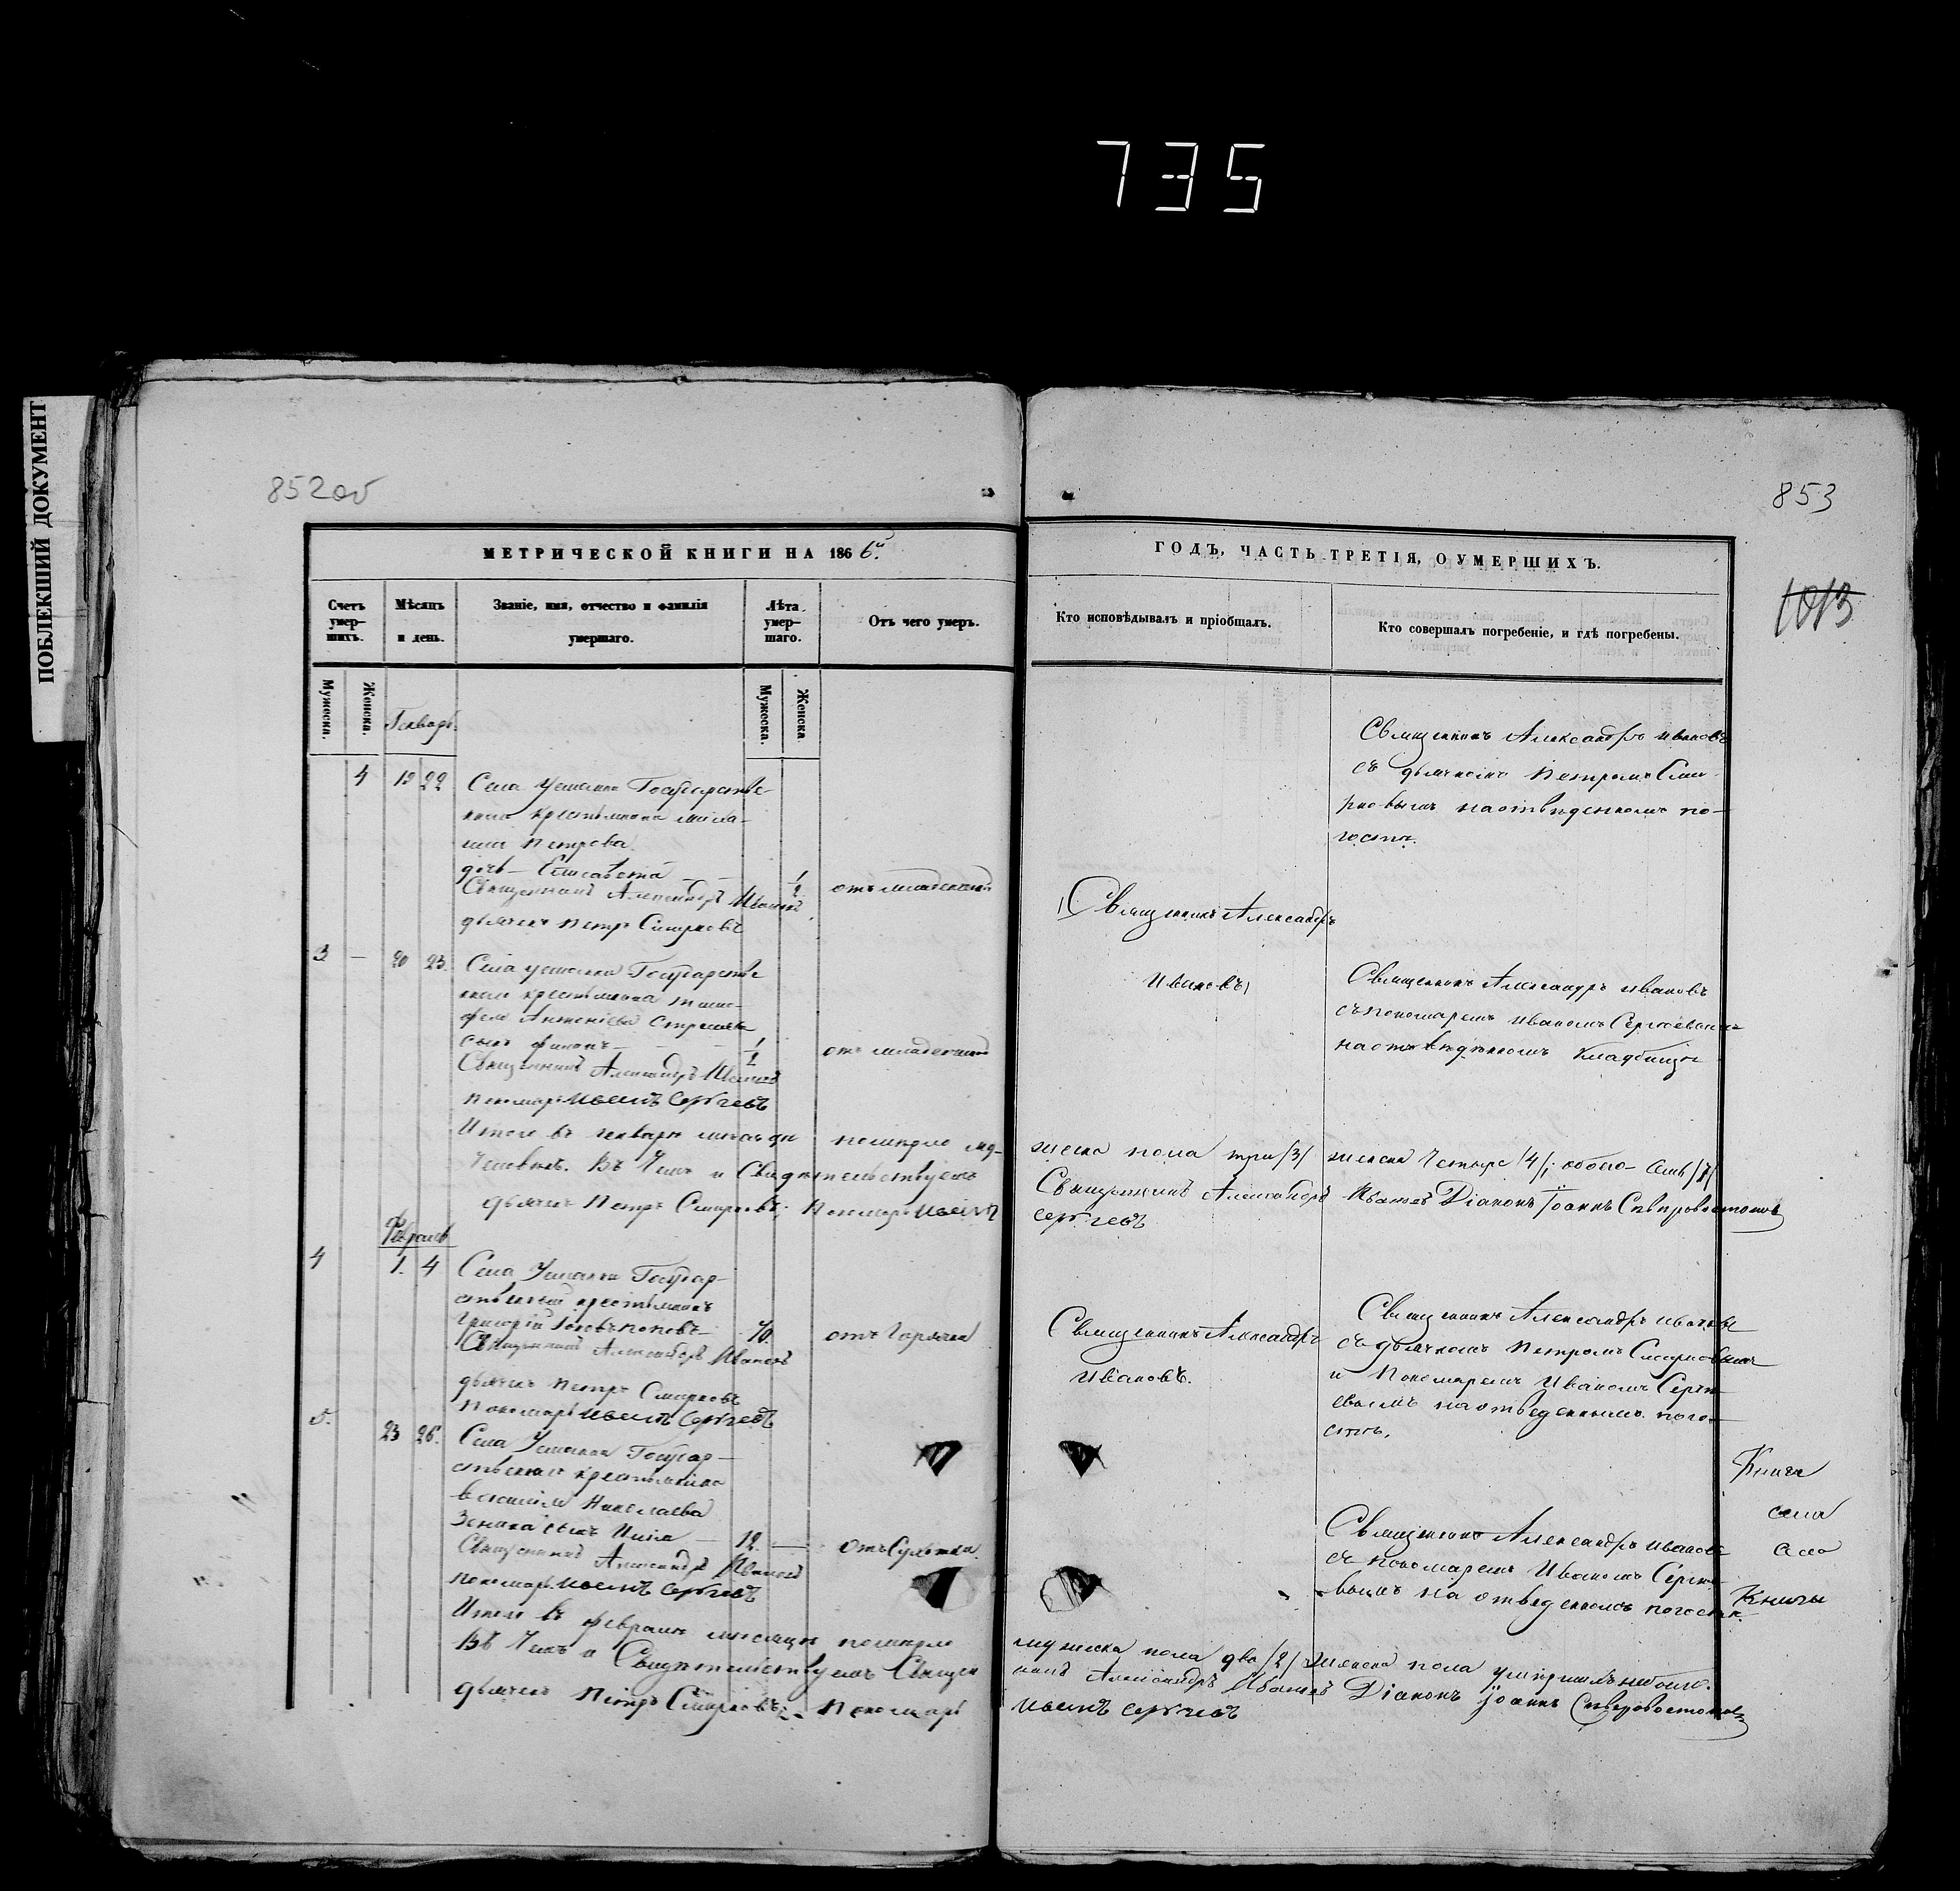 735
ПОБЛЕКШИЙ ДОКУМЕНТ
852об
МЕТРИЧЕСКОЙ КНИГИ НА 1866й.
Счетъ умер-шихъ.
Мѣсяцъ и день.
Званіе, имя, отчество и фамилія умершаго.
Лѣта умер-шаго.
Отъ чего умеръ.
Мужеска.
Женска.
Мужеска.
Женска
Генварь.
4 19 22 Села Усманки Государстве-
ннаго крестьянина
Петрова
дочь – Елисавета – – 1/2 отъ младенческой
Священникъ Александръ Ивановъ
дьячекъ Петръ Смирновъ
3 – 20 23. Села Усманки Государстве
ннаго крестьянина Тимо-
фея Антоніева
сынъ Филипъ – – – 1/2 отъ младенческой
Священникъ Александръ Ивановъ
пономарь Иванъ Сергѣевъ
Итого въ генварѣ мѣсяцѣ померло му-
Человѣкъ. Въ Чемъ и Свидѣтельствуемъ
дьячекъ Петръ Смирновъ; Пономарь Иванъ
Февраль
4 1. 4 Села Усманки Государ-
ственный крестьянинъ
Григорій Поповъ – 70. отъ Горячки
Священникъ Александръ Ивановъ
дьячекъ Петръ Смирновъ
пономарь Иванъ Сергѣевъ
5. 23 26. Села Усманки Государ-
ственнаго крестьянина
Василія Николаева
сынъ – 12. –
Священникъ Александръ Ивановъ
пономарь Иванъ Сергѣевъ
Итого въ февралѣ мѣсяцѣ померло
Въ Чемъ и Свидѣтельствуемъ Священ
дьячекъ Петръ Смирновъ; Пономарь
853
1013
ГОДЪ, ЧАСТЬ ТРЕТІЯ, О УМЕРШИХЪ.
Кто исповѣдывалъ и пріобщалъ.
Кто совершалъ погребеніе, и гдѣ погребены.
Священникъ Александръ Ивановъ
съ дьячкомъ Петромъ Сми-
рновымъ на отведенномъ по-
гостѣ.
Священникъ Александръ
Ивановъ
Священникъ Александръ Ивановъ
съ пономаремъ Иваномъ Сергѣевымъ
на отведенномъ кладбищѣ
жеска пола три /3/ женска Четыре /4/; обоего – семь /7/
Священникъ Александръ Ивановъ Діаконъ Іоаннъ Сѣверовостоковъ
Сергѣевъ
Священникъ Александръ
Ивановъ.
Священникъ Александръ Ивановъ
съ дьячкомъ Петромъ Смирновымъ
и Пономаремъ Иваномъ Сергѣ-
евымъ на отведенномъ пого-
стѣ.
Священникъ Александръ Ивановъ
съ пономаремъ Иваномъ Сергѣе-
вымъ на отведенномъ погостѣ.
мужеска пола два /2/ женска пола умершихъ небыло.
никъ Александръ Ивановъ Діаконъ Іоаннъ Сѣверовостоковъ
Иванъ Сергѣевъ
Книга
села
село
Книгы